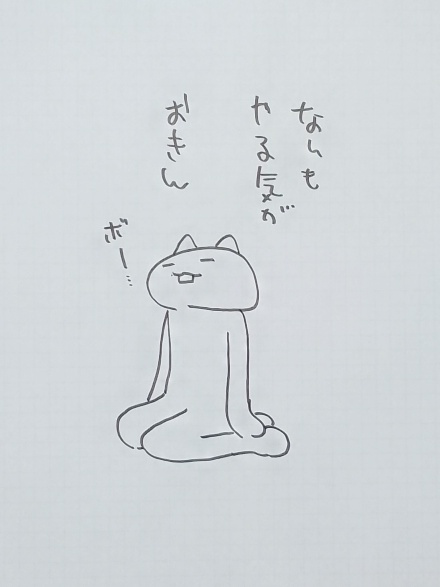 なんも
やる気が
おきん
ボー…